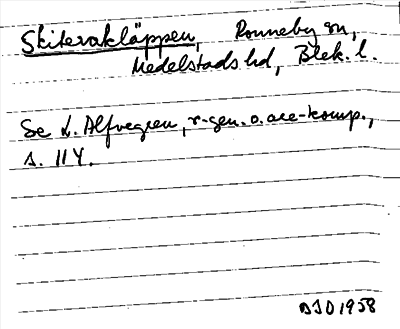 Skitevakläppen, Ronneby sn,
Medelstads hd, Blek. l.
Se L. Alfvegren, r-gen. o. are-komp.,
s. 114.
DJO 1958